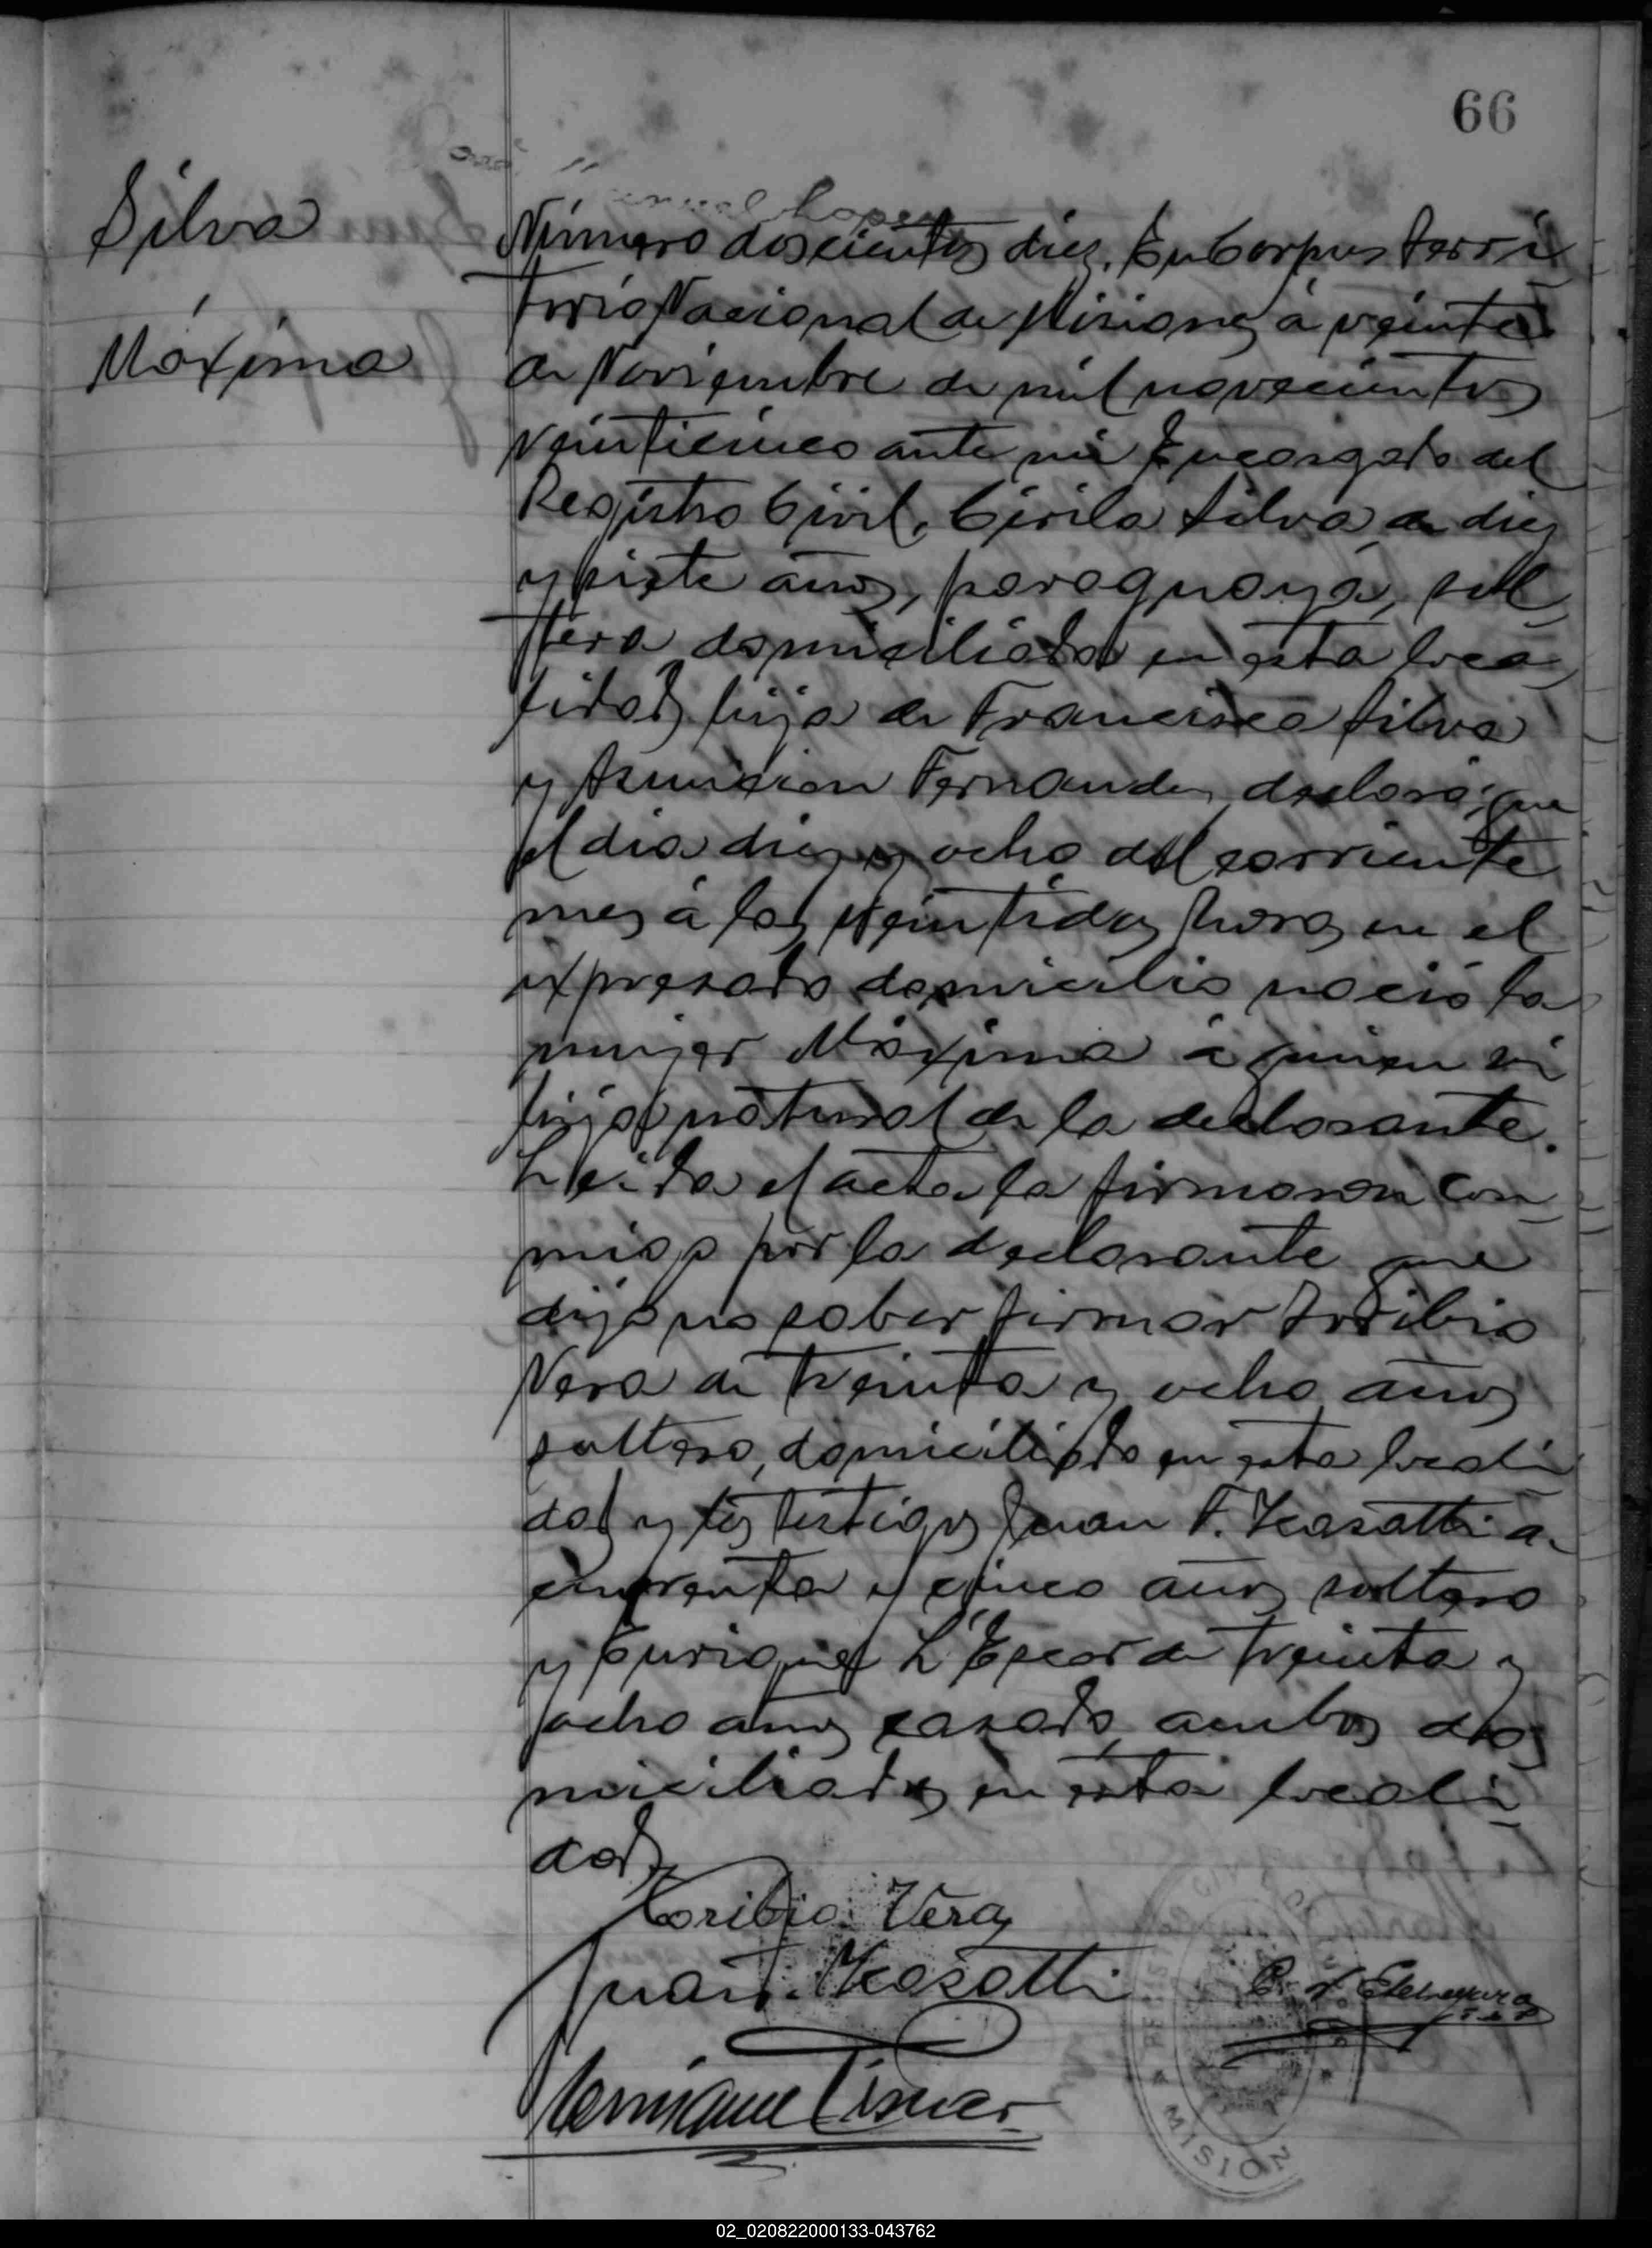 66
Silva
Máxima
Número doscientos diez. En Corpus Terri
torio Nacional de Misiones á veinte
de Noviembre de mil novecientos
veinticinco ante mi Encargado del
Registro Civil, Cirila Silva de diez
y siete años, paraguaya, sol
tera domiciliada en esta loca
lidad, hija de Francisco Silva
y Asuncion Fernandez, declaró: que
el dia diez y ocho del corriente
mes á las veintidos horas en el
expresado domicilio nació la
mujer Máxima á quien vi
hija natural de la declarante.
Leida el acta la firmaron con
migo por la declarante que
dijo no saber firmar Toribio
Vera de treinta y ocho años
soltero, domiciliado en esta locali
dad y los testigos Juan F. Kasatti de
cuarenta y cinco años soltero
y Enrique de treinta y
ocho años casado, ambos do
miciliados en esta locali
dad.
Toribio Vera
Juan F. Kasatti
MISION
02_020822000133-043762